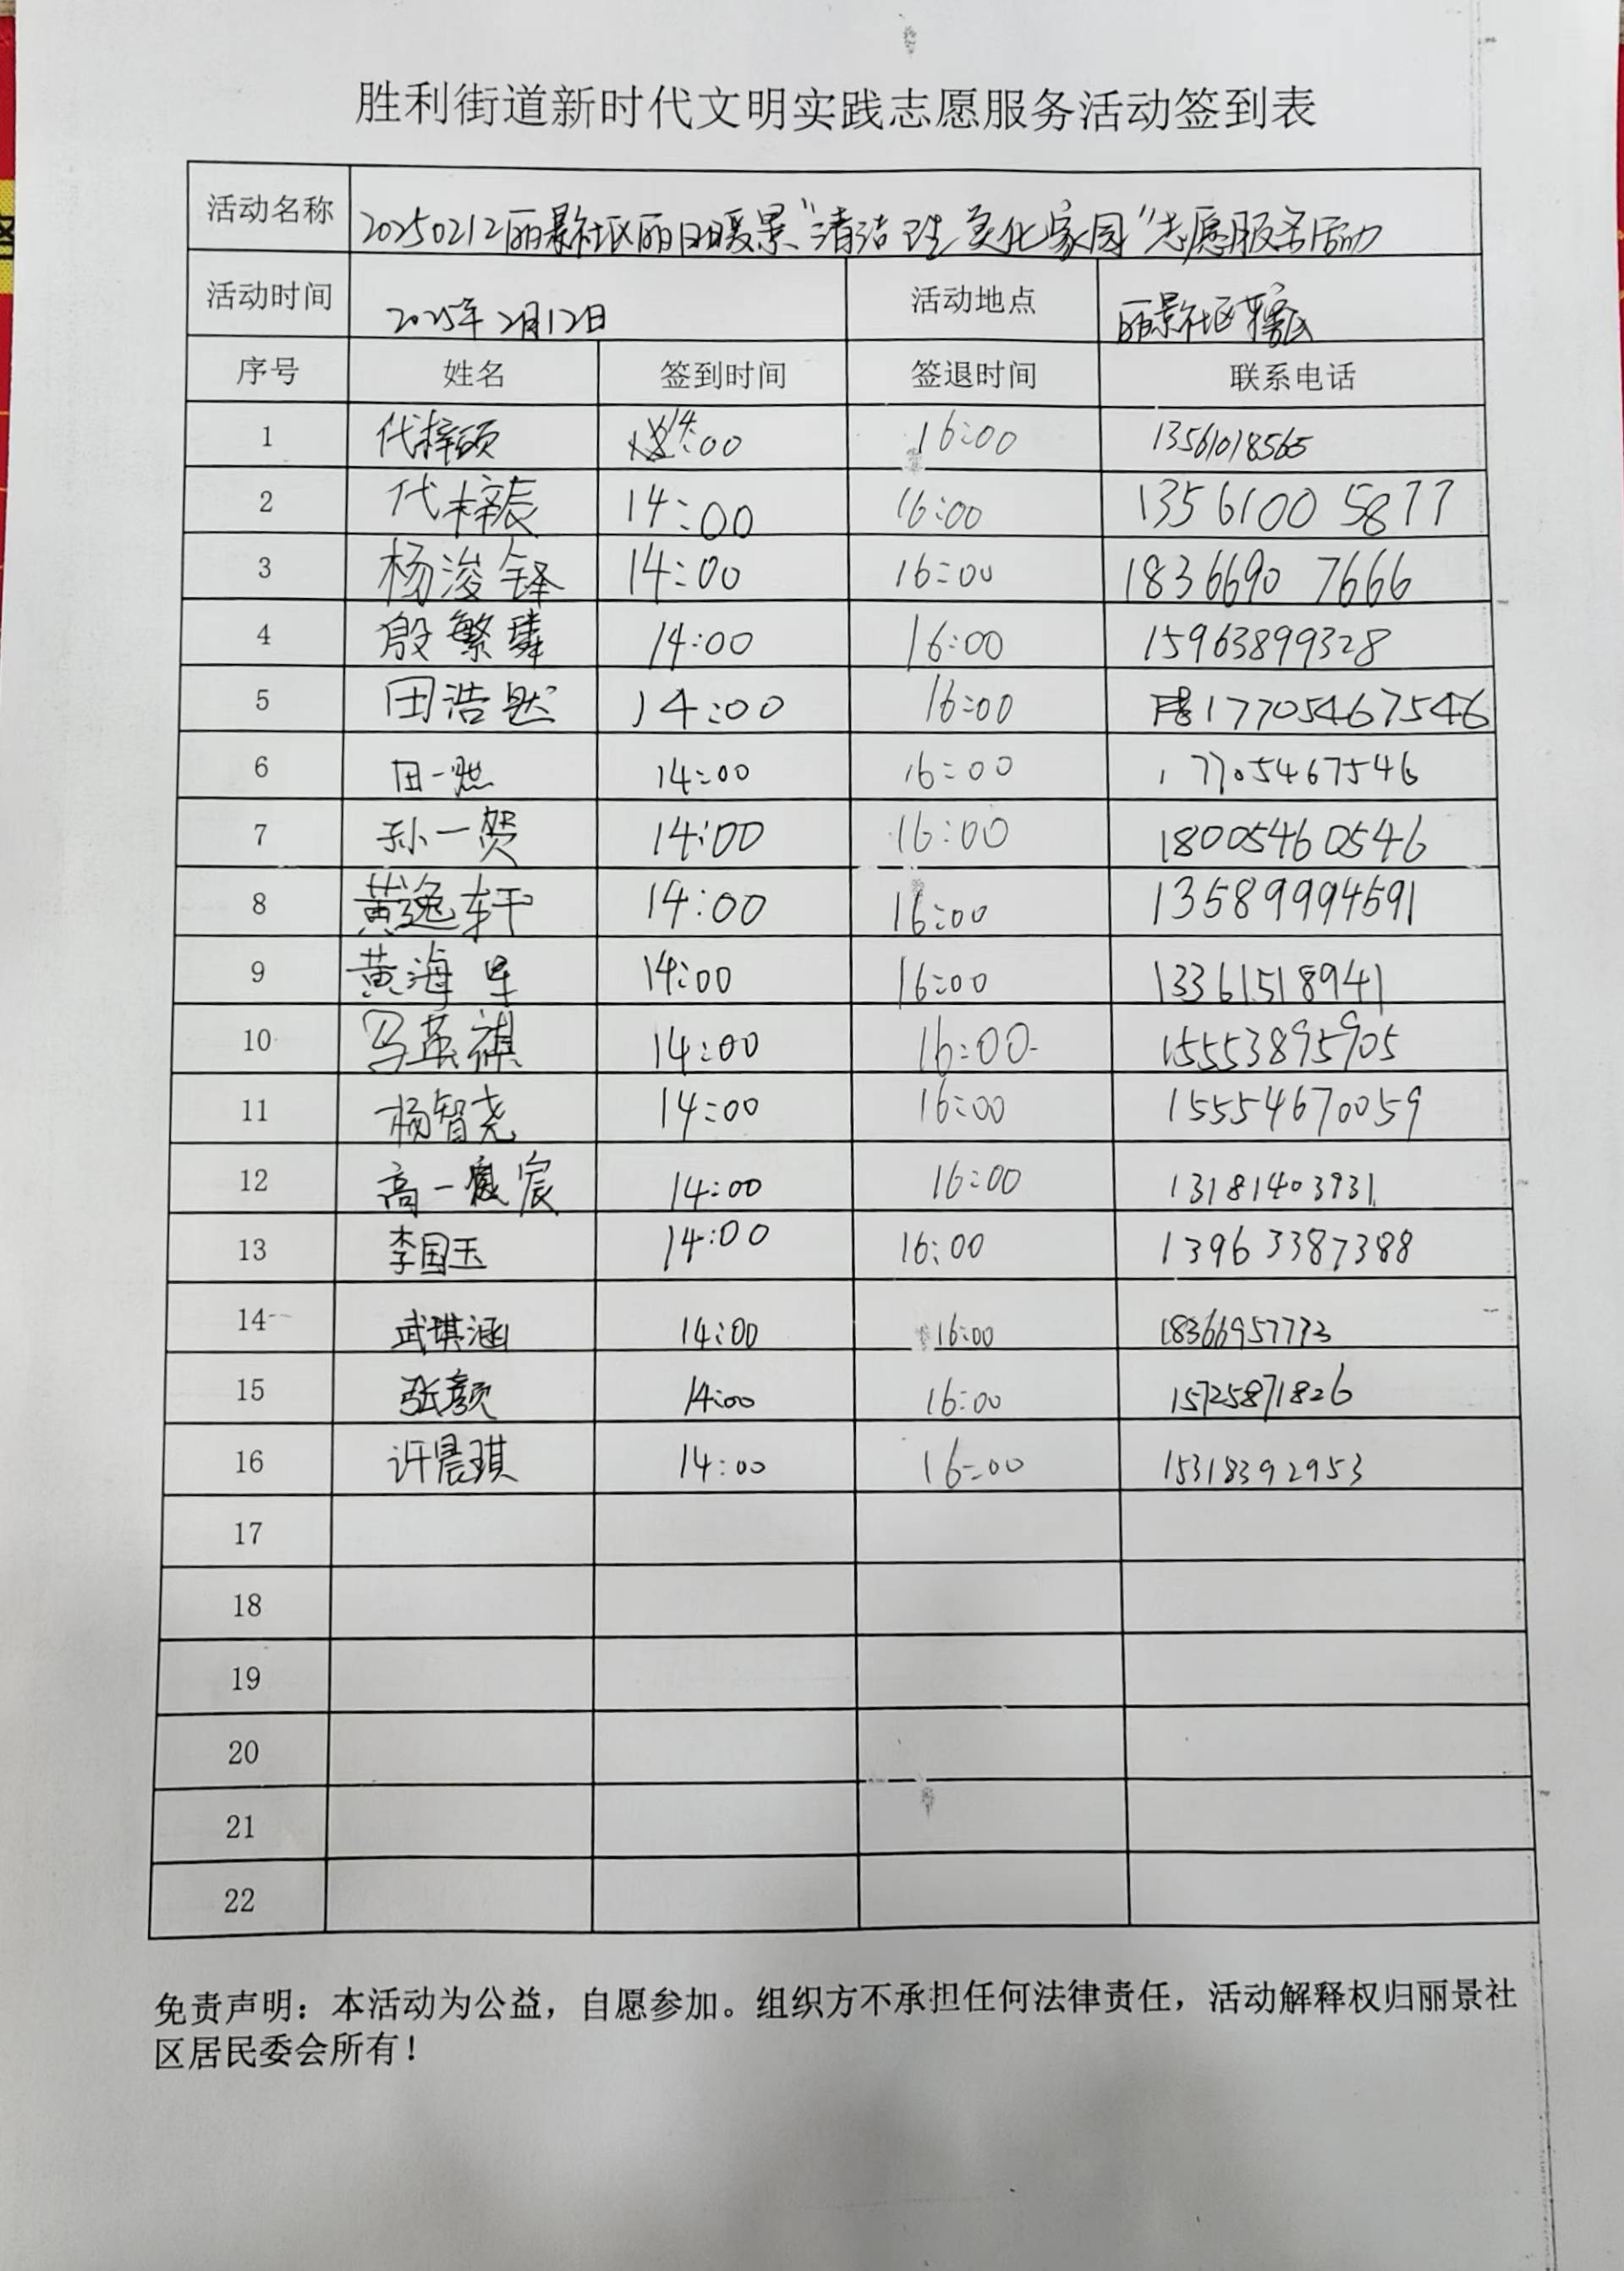 胜利街道新时代文明实践志愿服务活动签到表
活动名称 20250212丽景社区丽日暖景“清洁 美化家园”志愿服务活动
活动时间 2025年2月12日 活动地点 丽景社区辖区
序号 姓名 签到时间 签退时间 联系电话
1 代梓硕 14:00 16:00 13561018565
2 代梓辰 14:00 16:00 13561005877
3 杨浚铎 14:00 16:00 18366907666
4 殷繁 14:00 16:00 15963899328
5 田浩然 14:00 16:00 17705467546
6 田一然 14:00 16:00 17705467546
7 孙一贺 14:00 16:00 18005460546
8 黄逸轩 14:00 16:00 13589994591
9 黄海 14:00 16:00 13361518941
10 马英祺 14:00 16:00 15553895905
11 杨智尧 14:00 16:00 15554670059
12 高一宸 14:00 16:00 13181403931
13 李国玉 14:00 16:00 13963387388
14 武琪涵 14:00 16:00 18366957773
15 张颜 14:00 16:00 15725871826
16 许晨琪 14:00 16:00 15318392953
17
18
19
20
21
22
免责声明：本活动为公益，自愿参加。组织方不承担任何法律责任，活动解释权归丽景社
区居民委会所有！